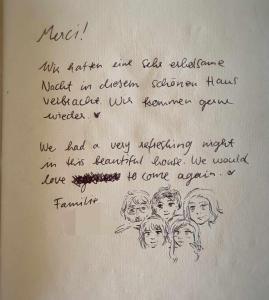 Merci!
Wir hatten eine sehr erholsame
Nacht in diesem schönen Haus
verbracht. Wir kommen gerne
wieder. ♥
We had a very refreshing night
in this beautiful house. We would
love to come again. ♥
Familie